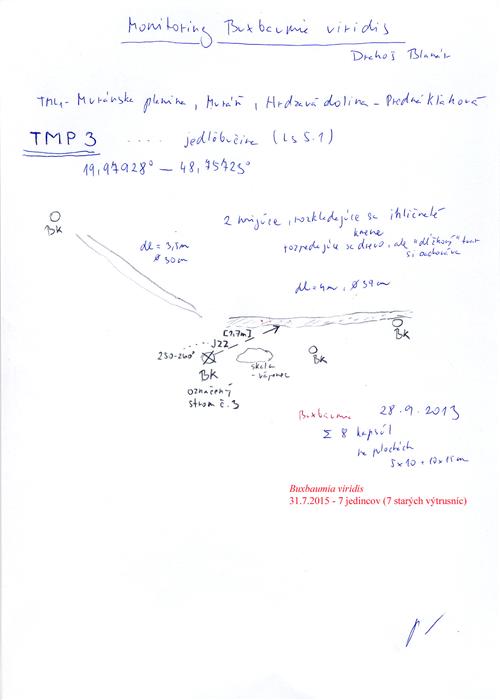 Monitoring Buxbaumia viridis
Drahoš Blanár
TML - Muránska planina, Muráň, Hrdzavá dolina - Predná Kľaková
TMP 3 .... jedlobučina (Ls 5.1)
19,97928° — 48,75725°
BK
dl = 3,5m
ø 30cm
2 hnijúce, rozkladajúce sa ihličnaté
kmene
rozpadajúce sa drevo, ale "dĺžkový" tvar
si zachováva
dl = 4m, ø 39cm
[1,7m]
JZZ
250-260°
BK
skala
- vápenec
BK
BK
označený
strom č. 3
Buxbaumia 28.9.2013
Σ 8 kapsúl
na plochách
5x10 + 10x15cm
Buxbaumia viridis
31.7.2015 - 7 jedincov (7 starých výtrusníc)